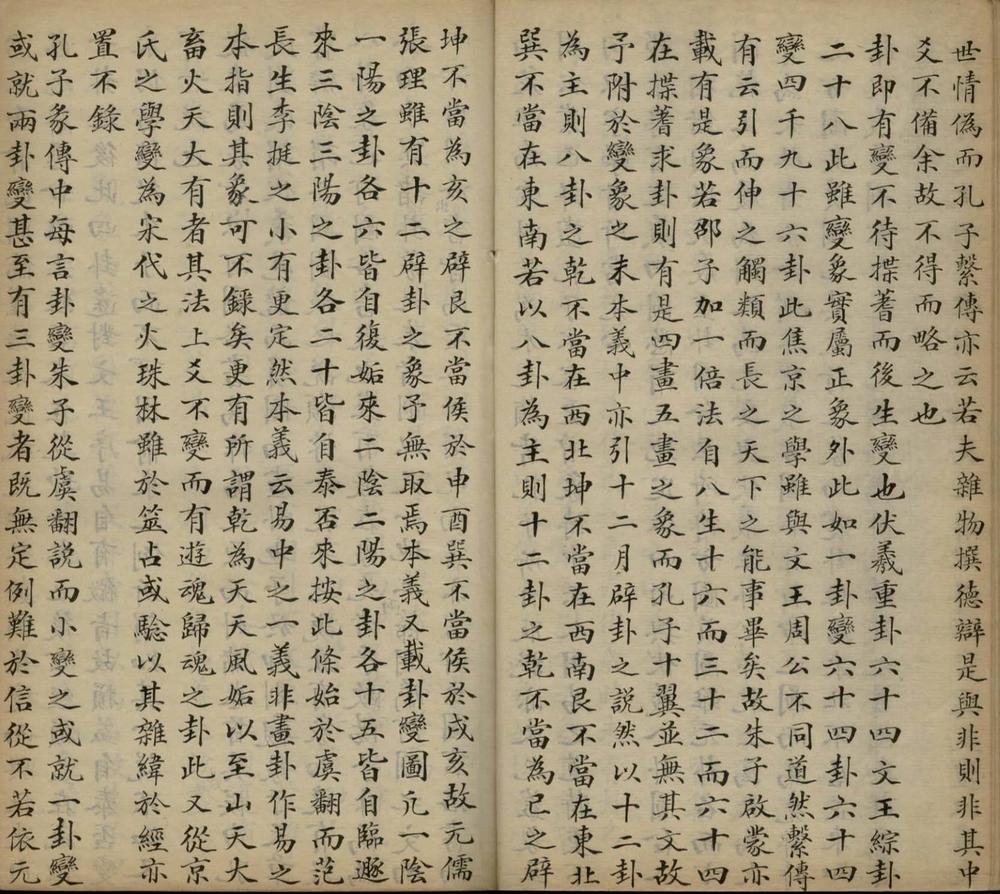 世情偽而孔子繫傳亦云若夫雜物撰德辯是與非則非其中
爻不備余故不得而略之也
卦即有變不待揲蓍而後生變也伏羲重卦六十四文王綜卦
二十八此雖變象實屬正象外此如一卦變六十四卦六十四
變四千九十六卦此焦京之學雖與文王周公不同道然繫傳
有云引而伸之觸類而長之天下之能事畢矣故朱子啟蒙亦
載有是象若邵子加一倍法自八生十六而三十二而六十四
在揲蓍求卦則有是四畫五畫之象而孔子十翼並無其文故
予附於變象之末本義中亦引十二月辟卦之説然以十二卦
為主則八卦之乾不當在西北坤不當在西南艮不當在東北
巽不當在東南若以八卦為主則十二卦之乾不當為已之辟
坤不當為亥之辟艮不當侯於申酉巽不當侯於戌亥故元儒
張理雖有十二辟卦之象予無取焉本義又載卦變圖凢一陰
一陽之卦各六皆自復姤來二陰二陽之卦各十五皆自臨遯
來三陰三陽之卦各二十皆自泰否來按此條始於虞翻而范
長生李挺之小有更定然本義云易中之一義非畫卦作易之
本指則其象可不錄矣更有所謂乾為天天風姤以至山天大
畜火天大有者其法上爻不變而有遊魂歸魂之卦此又從京
氏之學變為宋代之火珠林雖於筮占或驗以其雜緯於經亦
置不錄
孔子彖傳中每言卦變朱子從虞翻説而小變之或就一卦變
或就兩卦變甚至有三卦變者既無定例難於信從不若依元